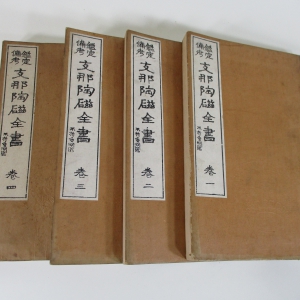 鑑定
備考
支那陶磁全書
卷一
鑑定
備考
支那陶磁全書
卷二
鑑定
備考
支那陶磁全書
卷三
鑑定
備考
支那陶磁全書
卷四